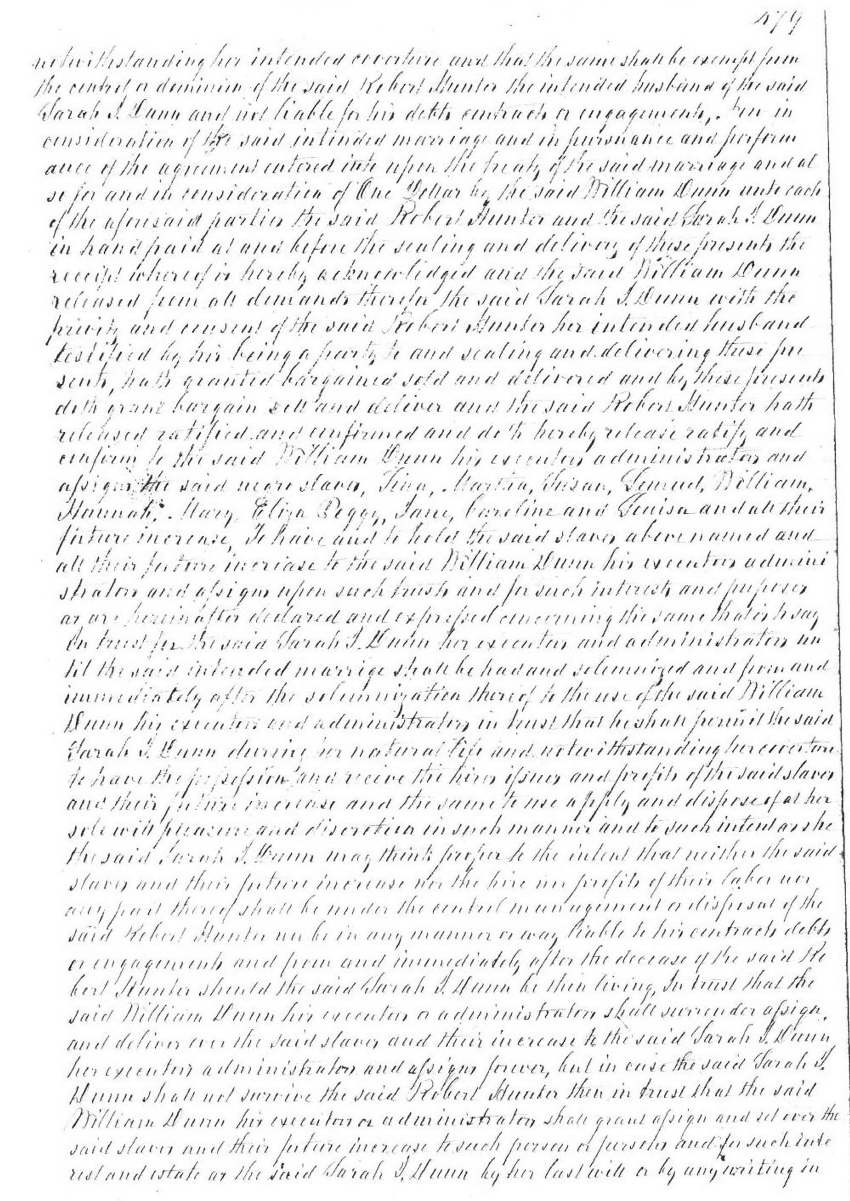 479
notwithstanding her intended coverture and that the same shall be exempt from
the control or dominion of the said Robert Hunter the intended husband of the said
Sarah J. Dunn and not liable for his debts contracts or engagements, in
consideration of the said intended marriage and in pursuance and perform
ance of the agreement entered into upon the treaty of the said marriage and al
so for and in consideration of One Dollar by the said William Dunn unto each
of the aforesaid parties the said Robert Hunter and the said Sarah J. Dunn
in hand paid at and before the sealing and delivery of these presents the
receipt whereof is hereby acknowledged and the said William Dunn
released from all demands therefor the said Sarah J. Dunn with the
privity and consent of the said Robert Hunter her intended husband
testified by his being a party to and sealing and delivering these pre
sents, hath granted bargained sold and delivered and by these presents
doth grant bargain sell and deliver and the said Robert Hunter hath
released ratified and confirmed and doth hereby release ratify and
confirm to the said William Dunn his executors administrators and
assigns the said negro slaves, Tina, Martha, Susan, Lemuel, William,
Hannah, Mary, Eliza Peggy, Jane, Caroline and Louisa and all their
future increase, To have and to hold the said slaves above named and
all their future increase to the said William Dunn his executors admini
strators and assigns upon such trusts and for such interests and purposes
as are hereinafter declared and expressed concerning the same that is to say
In trust for the said Sarah J. Dunn her executors and administrators un
til the said intended marrige shall be had and solemnized and from and
immediately after the solemnization thereof to the use of the said William
Dunn his executors and administrators in trust that he shall permit the said
Sarah J. Dunn durring her natural life and notwithstanding her coverture
to have the possession and recive the hires issues and profits of the said slaves
and their future increase and the same to use apply and dispose of at her
sole will pleasure and discretion in such manner and to such intent as she
the said Sarah J. Dunn may think proper to the intent that neither the said
slaves and their future increase nor the hire nor profits of their labor nor
any part thereof shall be under the control management or disposal of the
said Robert Hunter nor be in any manner or way liable to his contracts debts
or engagements and from and immediately after the decease of the said Ro
bert Hunter should the said Sarah J. Dunn be then living, In trust that the
said William Dunn his executors or administrators shall surrender assign,
and deliver over the said slaves and their increase to the said Sarah J. Dunn
her executors administrators and assigns forever, but in case the said Sarah J.
Dunn shall not survive the said Robert Hunter then in trust that the said
William Dunn his executors or administrators shall grant assign and set over the
said slaves and their future increase to such person or persons and for such inte
rest and estate as the said Sarah J. Dunn by her last will or by any writing in